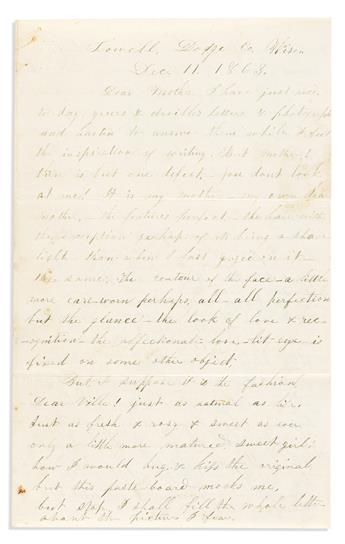 Lowell, Dodge Co. Wiscon
Dec. 11. 1863.
Dear Mother, I have just rec.
to day, yours & letters & photograph
and hasten to answer them while I feel
the inspiration of writing. But mother!
there is but one defect - you dont look
at me! It is my mother - my own dear
mother, - the features perfect - the hair with
the exception perhaps of its being a shade
light than when I last gazed on it
the same; The contour of the face - a little
more care-worn perhaps, all - all perfection
but the glance - the look of love & rec-
ognition - the affectionate love-lit eye is
fixed on some other object;
But I suppose it is the fashion
Dear Villie! just as natural as life.
Just as fresh & rosy & sweet as ever
only a little more matured, sweet girl!
how I would hug & kiss the original,
but this paste-board mocks me,
but stop, I shall fill the whole letter
about the pictures I fear.